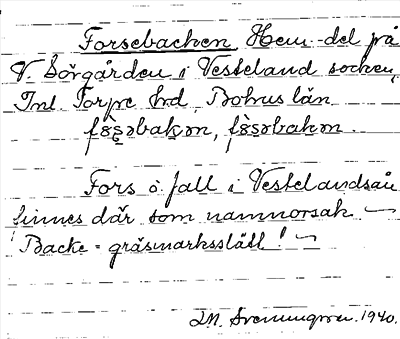 Forsebacken Hem.-del på
V. Sörgården i Vesteland socken,
Inl Torpe hd, Bohus län
fòs̥əbakən, fòs̥əbakən.
Fors o. fall i Vestelandsån
finnes där som namnorsak
Backe = gräsmarksslätt!
1940.